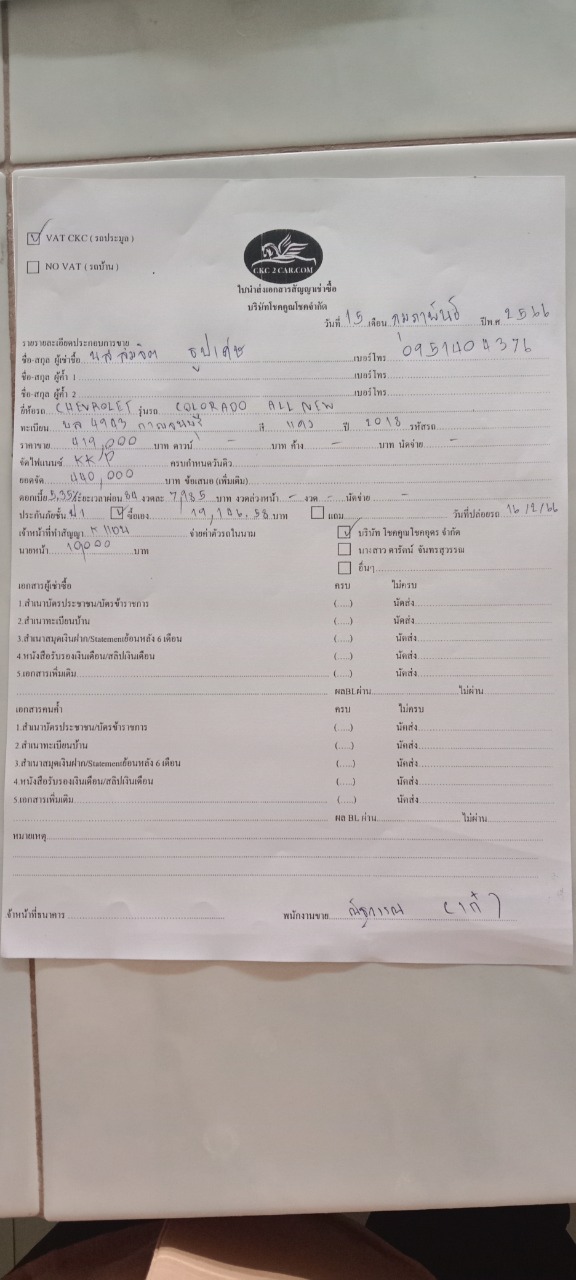 VAT CKC ( รถประมูล )
NO VAT ( รถบ้าน )
CKC 2 CAR.COM
ใบนำส่งเอกสารสัญญาเช่าซื้อ
บริษัทโชคคูณโชคจำกัด
วันที่ 15 เดือน กุมภาพันธ์ ปีพ.ศ 2566
รายรายละเอียดประกอบการขาย
ชื่อ-สกุล ผู้เช่าซื้อ นส สมจิต ธูปเศษ เบอร์โทร 0951404376
ชื่อ-สกุล ผู้ค้ำ 1 เบอร์โทร
ชื่อ-สกุล ผู้ค้ำ 2 เบอร์โทร
ยี่ห้อรถ CHEVROLET รุ่นรถ COLORADO ALL NEW
ทะเบียน 4943 กาญจนบุรี สี แดง ปี 2018 รหัสรถ
ราคาขาย 419,000 บาท ดาวน์ - บาท ค้าง - บาท นัดจ่าย -
จัดไฟแนนซ์ KKP ครบกำหนดวันดิว
ยอดจัด 440,000 บาท ข้อเสนอ (เพิ่มเติม)
ดอกเบี้ย 5.35% ระยะเวลาผ่อน 84 งวดละ 7,185 บาท งวดล่วงหน้า - งวด - นัดจ่าย -
ประกันภัยชั้น ป1 ซื้อเอง 19,146.58 บาท แถม วันที่ปล่อยรถ 16/2/66
เจ้าหน้าที่ทำสัญญา K แอน จ่ายค่าตัวรถในนาม บริษัท โชคคูณโชคจุตร จำกัด
นายหน้า 19000 บาท นางสาว ดารัตน์ จันทรสุวรรณ
อื่นๆ
เอกสารผู้เช่าซื้อ ครบ ไม่ครบ
1.สำเนาบัตรประชาชน/บัตรข้าราชการ (.....) นัดส่ง
2.สำเนาทะเบียนบ้าน (.....) นัดส่ง
3.สำเนาสมุดเงินฝาก/Statementย้อนหลัง 6 เดือน (.....) นัดส่ง
4.หนังสือรับรองเงินเดือน/สลิปเงินเดือน (.....) นัดส่ง
5.เอกสารเพิ่มเติม (.....) นัดส่ง
ผลBLผ่าน ไม่ผ่าน
เอกสารคนค้ำ ครบ ไม่ครบ
1.สำเนาบัตรประชาชน/บัตรข้าราชการ (.....) นัดส่ง
2.สำเนาทะเบียนบ้าน (.....) นัดส่ง
3.สำเนาสมุดเงินฝาก/Statementย้อนหลัง 6 เดือน (.....) นัดส่ง
4.หนังสือรับรองเงินเดือน/สลิปเงินเดือน (.....) นัดส่ง
5.เอกสารเพิ่มเติม (.....) นัดส่ง
ผล BL ผ่าน ไม่ผ่าน
หมายเหตุ
จ้าหน้าที่ธนาคาร พนักงานขาย